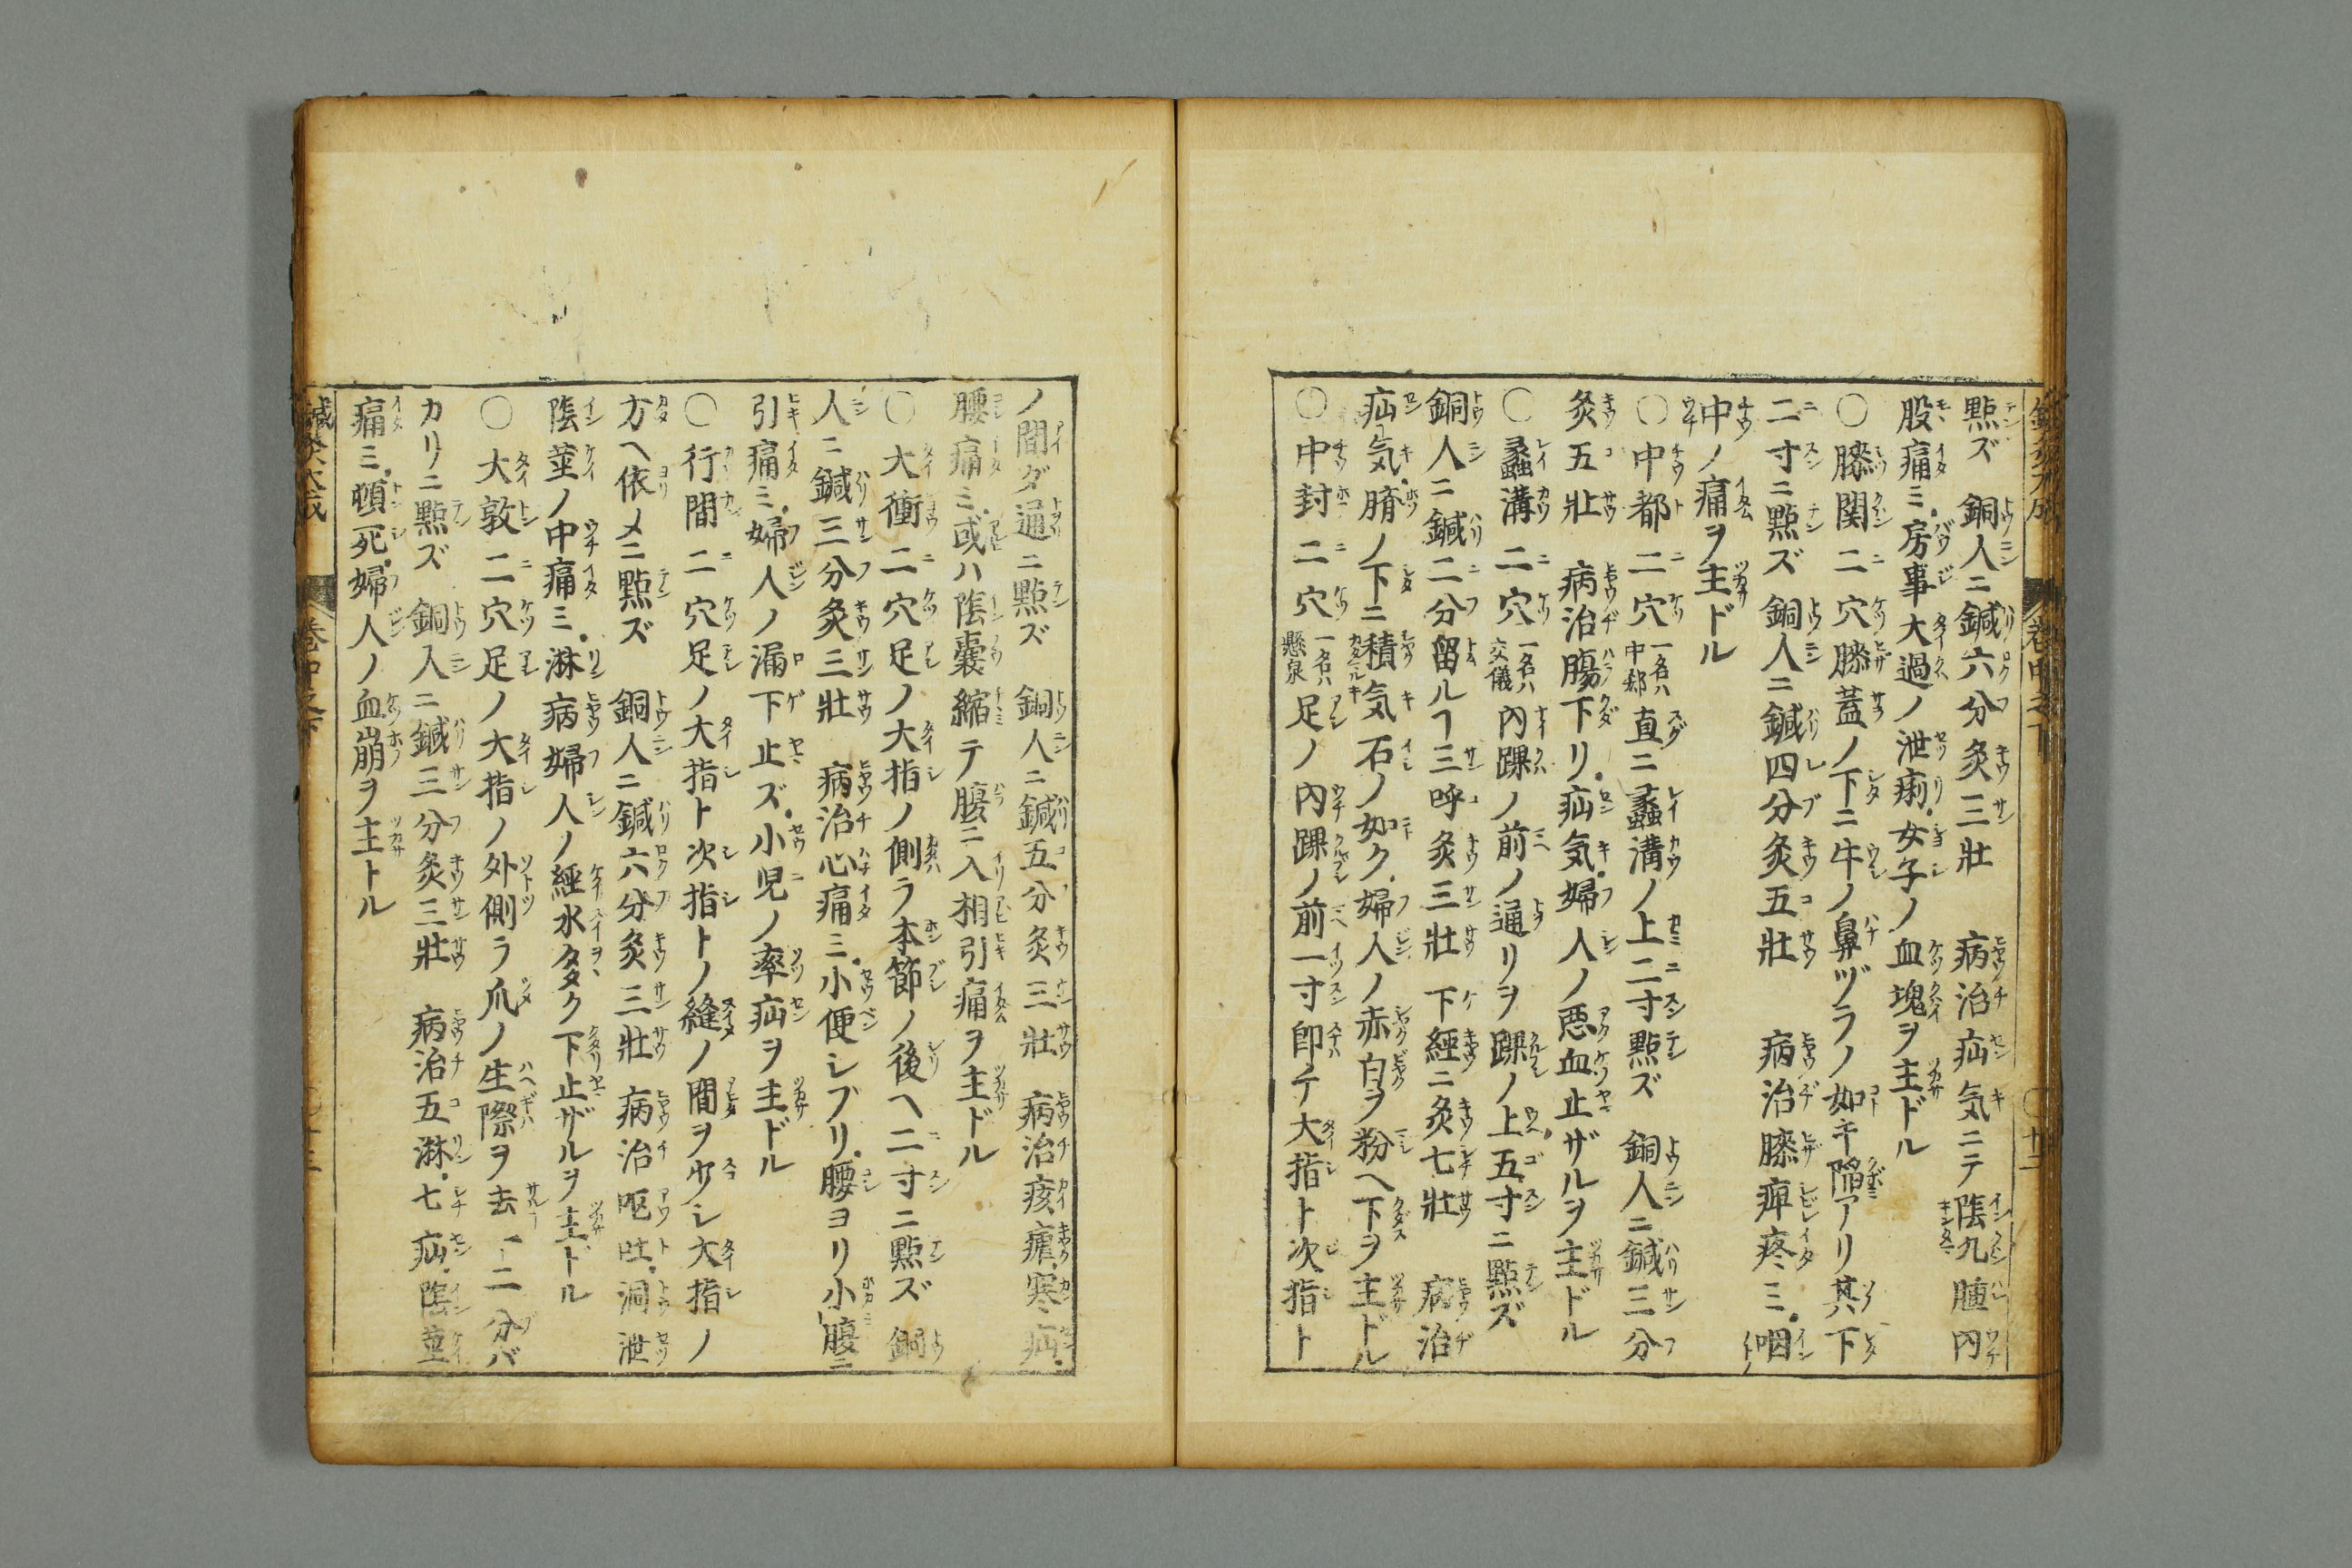 點ズ 銅人ニ鍼六分灸三壯 病治疝気ニテ陰丸腫内
股痛ミ房事大過ノ泄痢女子ノ血塊ヲ主ドル
〇膝関二穴膝蓋ノ下ニ牛ノ鼻ヅラノ如キ陥アリ其下
二寸ニ點ズ 銅人ニ鍼四分灸五壯 病治膝痺疼ミ咽
中ノ痛ヲ主ドル
〇中都二穴一名ハ中郄直ニ蠡溝ノ上二寸點ズ 銅人ニ鍼三分
灸五壯 病治腸下リ疝気婦人ノ悪血止ザルヲ主ドル
〇蠡溝二穴一名ハ交儀内踝ノ前ノ通リヲ踝ノ上五寸ニ點ズ
銅人ニ鍼二分留ルヿ三呼灸三壯 下經ニ灸七壯 病治
疝気臍ノ下ニ積気石ノ如ク婦人ノ赤白ヲ粉ヘ下ヲ主ドル
〇中封二穴一名ハ懸泉足ノ内踝ノ前一寸即チ大指ト次指ト
ノ間ダ通ニ點ズ 銅人ニ鍼五分灸三壯 病治痎瘧寒疝
腰痛ミ或ハ陰嚢縮テ腹ニ入相引痛ヲ主ドル
〇大衝二穴足ノ大指ノ側ラ本節ノ後ヘ二寸ニ點ズ 銅
人ニ鍼三分灸三壯 病治心痛ミ小便シブリ腰ヨリ小腹ニ
引痛ミ婦人ノ漏下止ズ小児ノ率疝ヲ主ドル
〇行間二穴足ノ大指ト次指トノ縫ノ間ヲ少シ大指ノ
方ヘ依メニ點ズ 銅人ニ鍼六分灸三壯 病治呕吐洞泄
陰莖ノ中痛ミ淋病婦人ノ經水タク下止ザルヲ主ドル
〇大敦二穴足ノ大指ノ外側ラ爪ノ生際ヲ去一二分バ
カリニ點ズ 銅人ニ鍼三分灸三壯 病治五淋七疝陰莖
痛ミ頓死婦人ノ血崩ヲ主トル
鍼灸大成 巻中之下